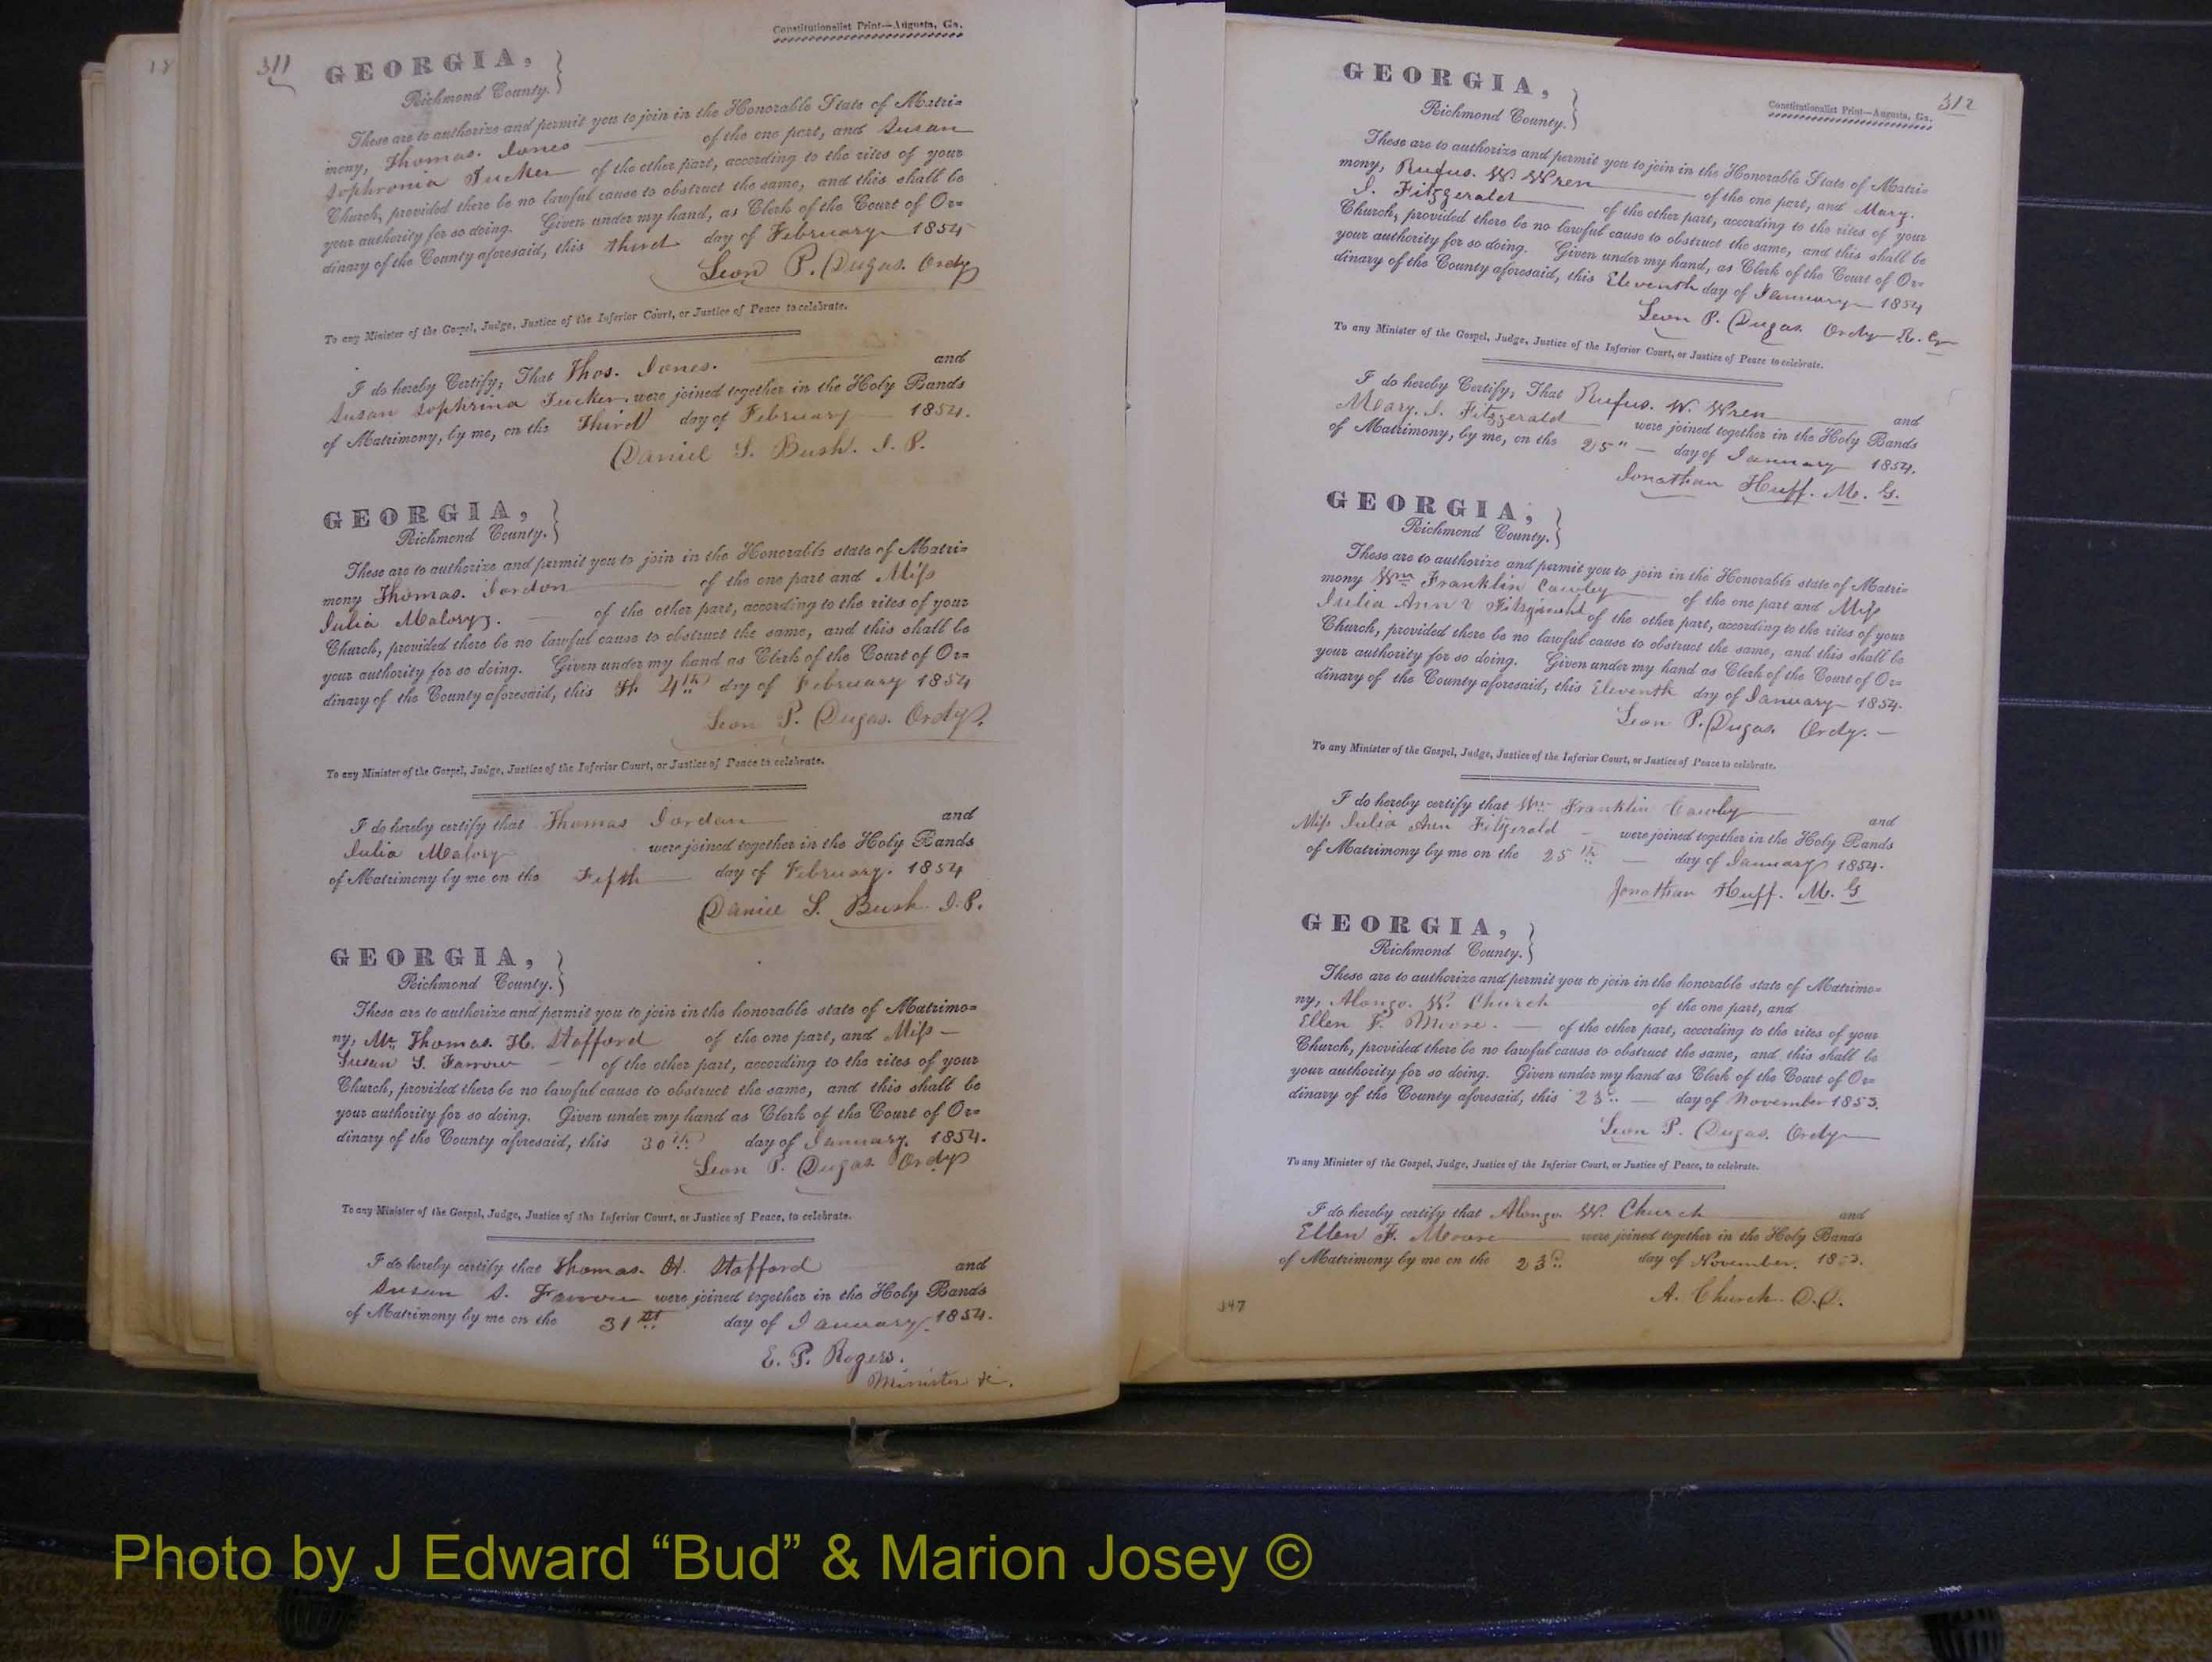 311
Constitutionalist Print—Augusta, Ga.
GEORGIA,
Richmond County.
These are to authorize and permit you to join in the Honorable State of Matri=
mony, Thomas. Jones of the one part, and Susan
Sophronia Tucker of the other part, according to the rites of your
Church, provided there be no lawful cause to obstruct the same, and this shall be
your authority for so doing. Given under my hand, as Clerk of the Court of Or=
dinary of the County aforesaid, this third day of February 1854
Leon P. Dugas. Ordy
To any Minister of the Gospel, Judge, Justice of the Inferior Court, or Justice of Peace to celebrate.
I do hereby Certify, That Thos. Jones. and
Susan Sophrina Tucker. were joined together in the Holy Bands
of Matrimony, by me, on the Third day of February 1854.
Daniel S. Bush. J. P.
GEORGIA,
Richmond County.
These are to authorize and permit you to join in the Honorable state of Matri=
mony Thomas. Jordon of the one part and Miss
Julia Malory. of the other part, according to the rites of your
Church, provided there be no lawful cause to obstruct the same, and this shall be
your authority for so doing. Given under my hand as Clerk of the Court of Or=
dinary of the County aforesaid, this 4th day of February 1854
Leon P. Dugas. Ordy.
To any Minister of the Gospel, Judge, Justice of the Inferior Court, or Justice of Peace to celebrate.
I do hereby certify that Thomas Jordan and
Julia Malory were joined together in the Holy Bands
of Matrimony by me on the Fifth day of February. 1854
Daniel S. Bush J. P.
GEORGIA,
Richmond County.
These are to authorize and permit you to join in the honorable state of Matrimo=
ny, Mr. Thomas. H. Stafford of the one part, and Miss
Susan S. Farrow of the other part, according to the rites of your
Church, provided there be no lawful cause to obstruct the same, and this shall be
your authority for so doing. Given under my hand as Clerk of the Court of Or=
dinary of the County aforesaid, this 30th day of January. 1854.
Leon P. Dugas. Ordy
To any Minister of the Gospel, Judge, Justice of the Inferior Court, or Justice of Peace, to celebrate.
I do hereby certify that Thomas. H. Stafford and
Susan S. Farrow were joined together in the Holy Bands
of Matrimony by me on the 31st day of January. 1854.
E. P. Rogers.
Minister &c.
312
Constitutionalist Print—Augusta, Ga.
GEORGIA,
Richmond County.
These are to authorize and permit you to join in the Honorable State of Matri=
mony, Rufus. W. Wren of the one part, and Mary.
J. Fitzgerald of the other part, according to the rites of your
Church, provided there be no lawful cause to obstruct the same, and this shall be
your authority for so doing. Given under my hand, as Clerk of the Court of Or=
dinary of the County aforesaid, this Eleventh day of January 1854
Leon P. Dugas. Ordy R. C.
To any Minister of the Gospel, Judge, Justice of the Inferior Court, or Justice of Peace to celebrate.
I do hereby Certify, That Rufus. W. Wren and
Mary. J. Fitzgerald were joined together in the Holy Bands
of Matrimony, by me, on the 25" day of January 1854.
Jonathan Huff. M. G.
GEORGIA,
Richmond County.
These are to authorize and permit you to join in the Honorable state of Matri=
mony Wm Franklin Cawley of the one part and Miss
Julia Ann of the other part, according to the rites of your
Church, provided there be no lawful cause to obstruct the same, and this shall be
your authority for so doing. Given under my hand as Clerk of the Court of Or=
dinary of the County aforesaid, this Eleventh day of January 1854.
Leon P. Dugas. Ordy.
To any Minister of the Gospel, Judge, Justice of the Inferior Court, or Justice of Peace to celebrate.
I do hereby certify that Wm Franklin Cawley and
Miss Julia Ann Fitzgerald were joined together in the Holy Bands
of Matrimony by me on the 25th day of January 1854.
Jonathan Huff. M. G
GEORGIA,
Richmond County.
These are to authorize and permit you to join in the honorable state of Matrimo=
ny, Alonzo. W. Church of the one part, and
Ellen F. Moore. of the other part, according to the rites of your
Church, provided there be no lawful cause to obstruct the same, and this shall be
your authority for so doing. Given under my hand as Clerk of the Court of Or=
dinary of the County aforesaid, this 23d day of November 1853.
Leon P. Dugas. Ordy
To any Minister of the Gospel, Judge, Justice of the Inferior Court, or Justice of Peace, to celebrate.
I do hereby certify that Alonzo. W. Church and
Ellen F. Moore were joined together in the Holy Bands
of Matrimony by me on the 23d day of November. 1853.
A. Church. D.D.
347
Photo by J Edward “Bud” & Marion Josey ©